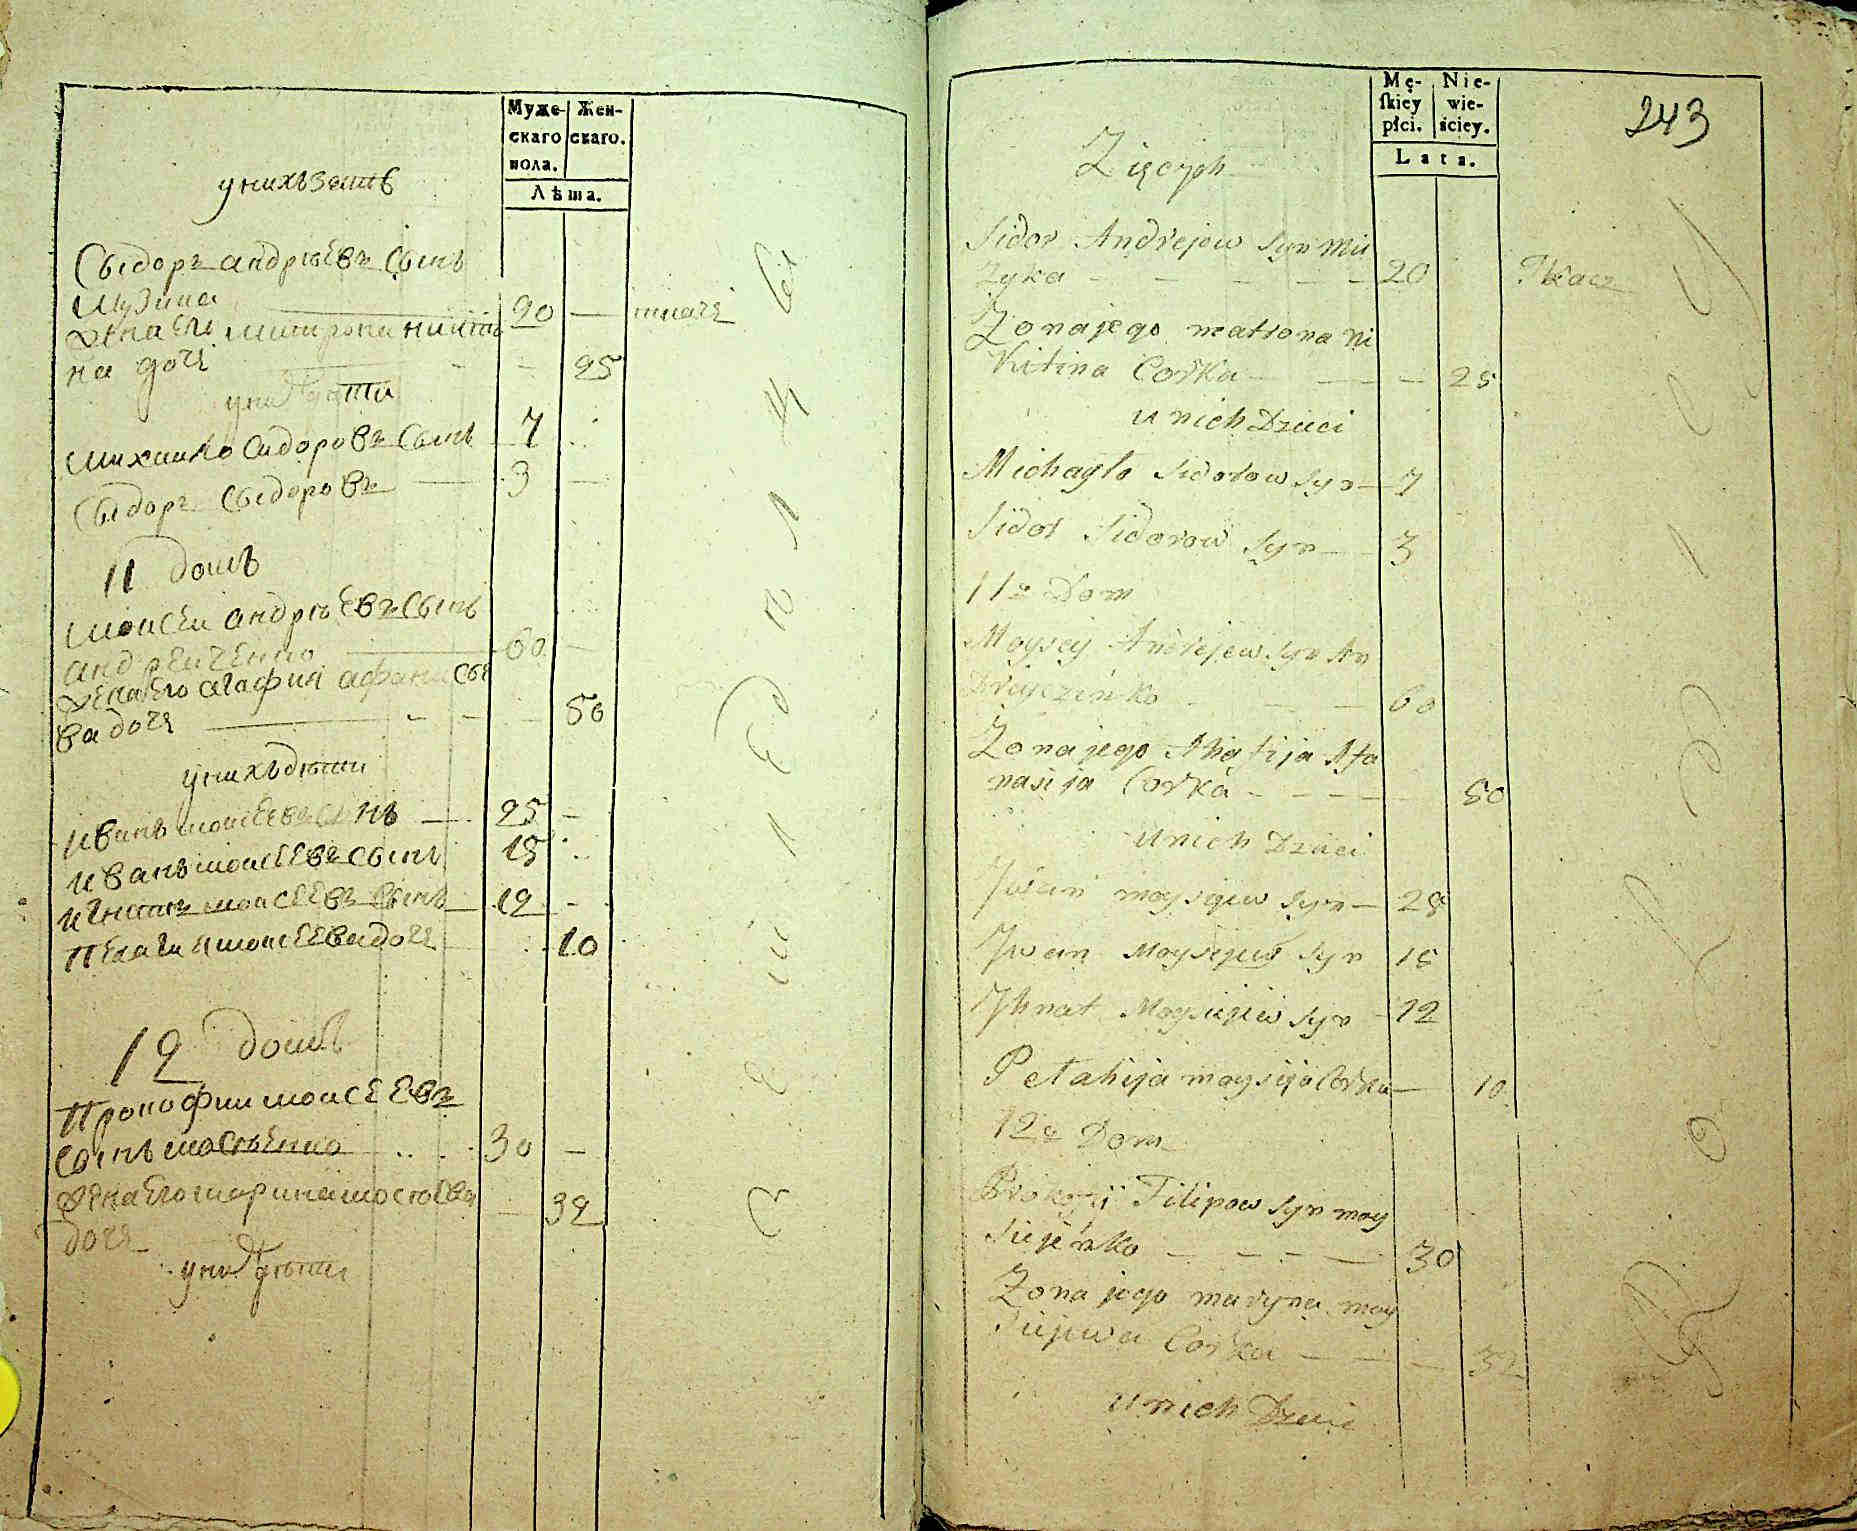 Муже-
скаго
пола.
Жен-
скаго.
Лѣта.
унихъ зять
Сыдоръ андрѣевъ сынъ
музика 20 — ткачъ
жена его матрона никити
на дочь — 25
уних дѣти
михаило сидоровъ сынъ 7
Сыдоръ Сыдоровъ — 3 —
11 домъ
моисеи андрѣевъ сынъ
андреиченко — 60 —
жена его агафия афанасье
ва дочь — 50
унихъ дѣти
иванъ моисеевъ сынъ — 25 —
иванъ моисеевъ сынъ 15
игнатъ моисеевъ сынъ — 12 —
пелагия моисеева дочь 10
12 домъ
Прокофии моисеевъ
сынъ 30 —
жена его марина
дочь 32
уних дѣти
Mę-
skiey
płci.
Nie-
wie-
ściey.
Lata.
243
Zięcych
Sidor Andrejew syn Mu
zyka — — — — — 20 Tkacz
Zona jego matrona Ni
kitina Corka — — — 25
u nich Dzieci
Michayło Sidorow syn — 7
Sidor Sidorow syn — 3
11e Dom
Moysey Andrejew syn An
dreiczenko — — — 60
Zona jego Ahafija Afa
nasija Corka — — — 50
u nich Dzieci
Jwan moysijew syn — 25
Jwan Moysijew syn 15
Jhnat Moysijew syn — 12
Pełahija moysija Corka — 10
12e Dom
Prokofij Filipow syn moy
siejenko — — — — 30
Zona jego maryna moy
siejewa Corka — — — 32
u nich Dzieci